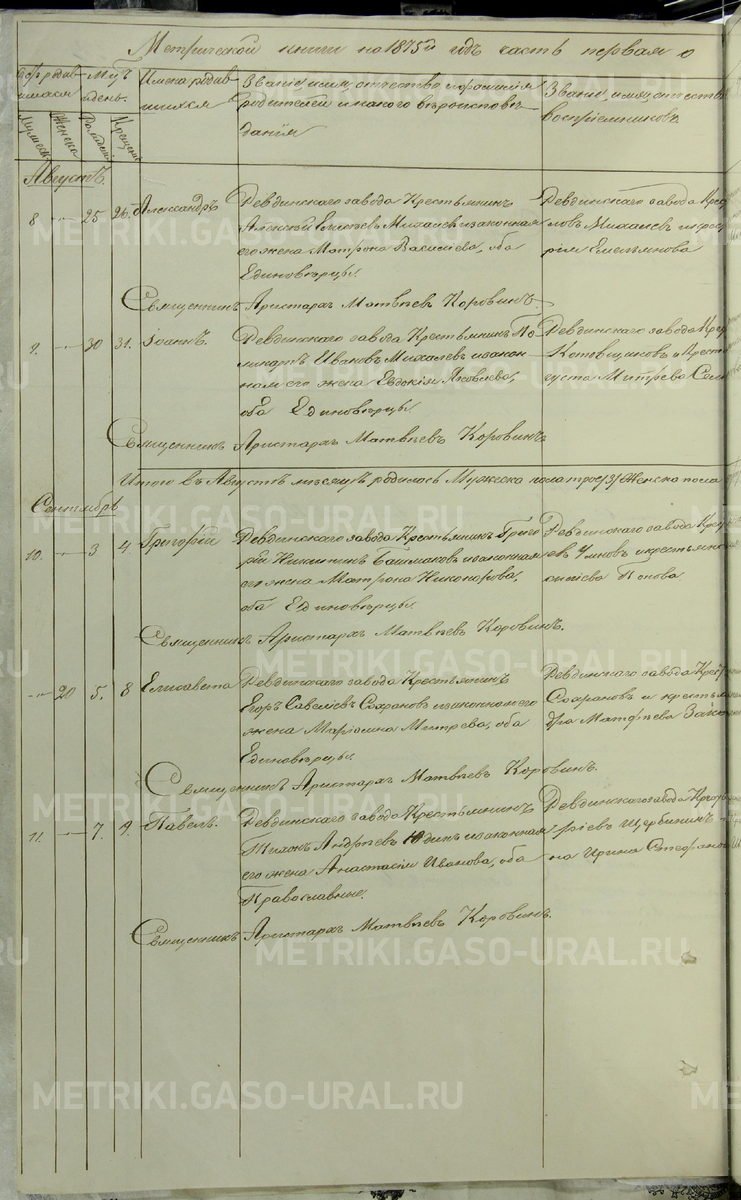 Метрической книги на 1875й годъ часть первая о
Счетъ родив-
шихся
Мѣс. и день.
Имена родив
шихся
Званіе, имя, отчество и фамилія
родителей и какого вѣроисповѣ-
данія
Званіе, имя, отчество
воспріемниковъ
Мужеска
Женска
Рожденія
Крещенія
Августъ.
8 25 26. Александръ
Ревдинскаго завода Крестьянинъ
Михалевъ и законная
его жена Матрона Василіева, оба
Единовѣрцы.
Ревдинскаго завода Крес
ловъ Михалевъ и
Емельянова
Священникъ Аристархъ Матвѣевъ Коровинъ
9. 30 31. Іоаннъ.
Ревдинскаго завода Крестьянинъ По
ликарпъ Ивановъ Михалевъ и закон
ная его жена Евдокія Яковлева,
оба Единовѣрцы
Ревдинскаго завода Крес
Котевщиковъ и Крест
густа Митрева
Священникъ Аристархъ Матвѣевъ Коровинъ
Итого въ Августѣ мѣсяцѣ родилось Мужеска пола трое /3/ Женска пола
Сентябрь
10. 3 4. Григорій
Ревдинскаго завода Крестьянинъ Григо
рій Никитинъ Башмаковъ и законная
его жена Матрона Никонорова,
оба Единовѣрцы.
Ревдинскаго завода Крес
евъ Умновъ и крестьянск
Попова
Священникъ Аристархъ Матвѣевъ Коровинъ.
20 5. 8 Елисавета
Ревдинскаго завода Крестьянинъ
Егоръ Савеліевъ Сохрановъ и законная его
жена Маріамна Митрева, оба
Единовѣрцы.
Ревдинскаго завода Крес
Сохрановъ и крестьян
дра Матфіева
Священникъ Аристархъ Матвѣевъ Коровинъ.
11. 7. 9. Павелъ.
Ревдинскаго завода Крестьянинъ
Тихонъ Андрѣевъ Юдинъ и законная
его жена Анастасія Иванова, оба
Православные.
Ревдинскаго завода Крест
ріевъ Щербининъ
на Ирина Стефанов
Священникъ Аристархъ Матвѣевъ Коровинъ.
METRIKI.GASO-URAL.RU
METRIKI.GASO-URAL.RU
METRIKI.GASO-URAL.RU
METRIKI.GASO-URAL.RU
METRIKI.GASO-URAL.RU
METRIKI.GASO-URAL.RU
METRIKI.GASO-URAL.RU